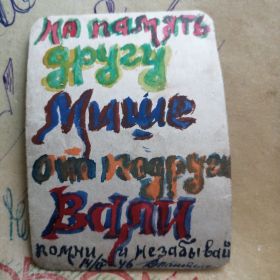 на память
другу
Мише
от подруги
Вали
помни и незабывай